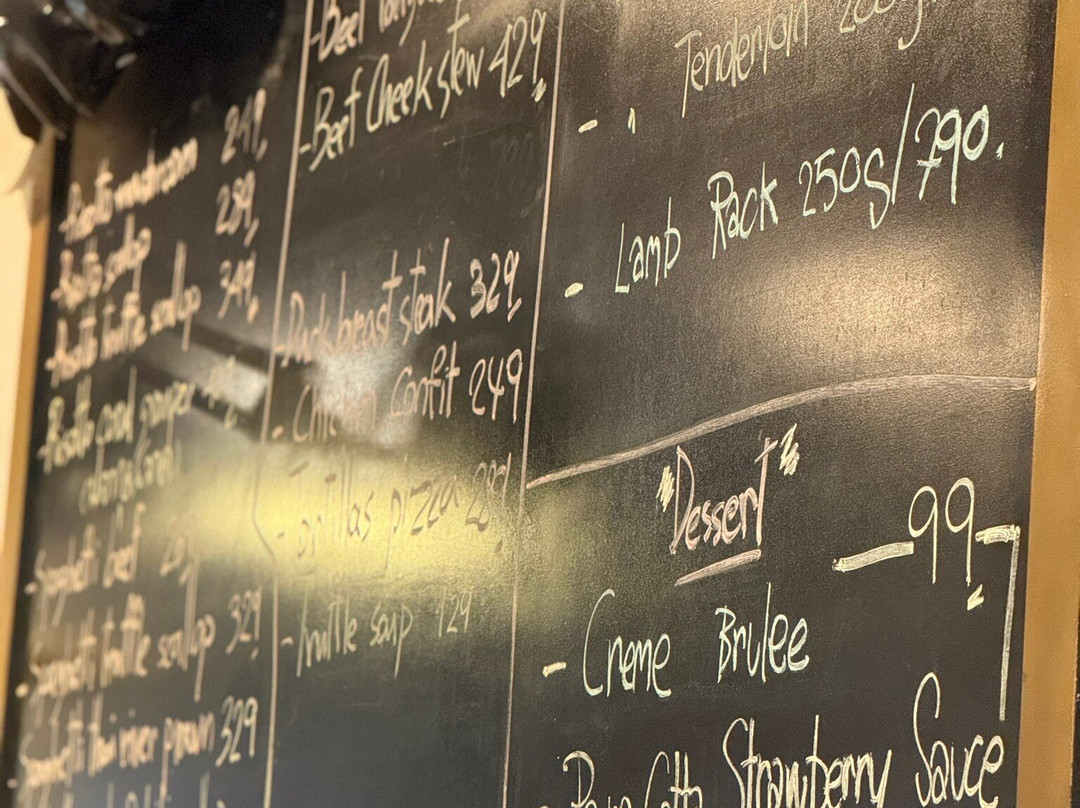 Risotto mushroom 249,
- Risotto scallop 289,
- Risotto truffle scallop 349,
- Risotto
- Spaghetti beef 289,
- Spaghetti truffle scallop 329
- Spaghetti thai river prawn 329
- Beef
- Beef Cheek stew 429,
- Duck breast steak 329,
- Confit 249
pizza 289,
- truffle soup 129
- " Tenderloin 200g
- Lamb Rack 250g/790.
"Dessert" 99
- Creme Brulee
Strawberry Sauce